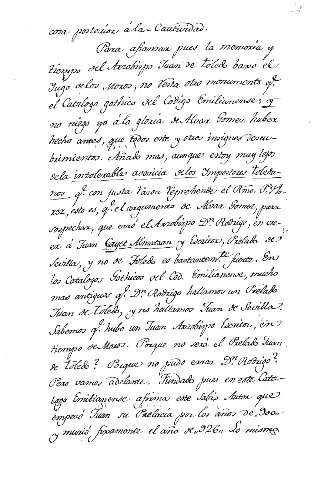 cosa posterior á la Cautividad.
Para afianzar pues la memoria y
tiempo del Arzobispo Juan de Toledo baxo el
Iugo de los Moros, no resta otro monumento q.e
el Catalogo gothico del Codigo Emilianense: y
no niego yo á la gloria de Alvar Gomez, haber
hecho antes, que todos este y otros insignes descu-
brimientos. Añado mas, aunque estoy muy lejos
de la intolerable avaricia de los Impostores Toleda-
nos q.e con justa razon reprehende el Rmo. P.
esto es, q.e el argumento de Alvar Gomez, para
sospechar, que erró el Arzobispo D.n Rodrigo, en cre-
er á Juan Cayet Almatran y Escritor, Prelado de
Sevilla, y no de Toledo es bastantem.te fuerte. En
los Catalogos Gothicos del Cod. Emilianense, mucho
mas antiguos q.e D.n Rodrigo hallamos un Prelado
Juan de Toledo, y no hallamos Juan de Sevilla.
Sabemos q.e hubo un Juan Arzobispo Escritor, en
tiempo de Moros. Porque no será el Prelado Juan
de Toledo? Porque no pudo errar D.n Rodrigo?
Pero vamos adelante. Fundado pues en este Cata-
logo Emilianense afirma este Sabio Autor que
empezó Juan su Prelacia por los años de 900..
y murió fixamente el año de 926.. Lo mismo